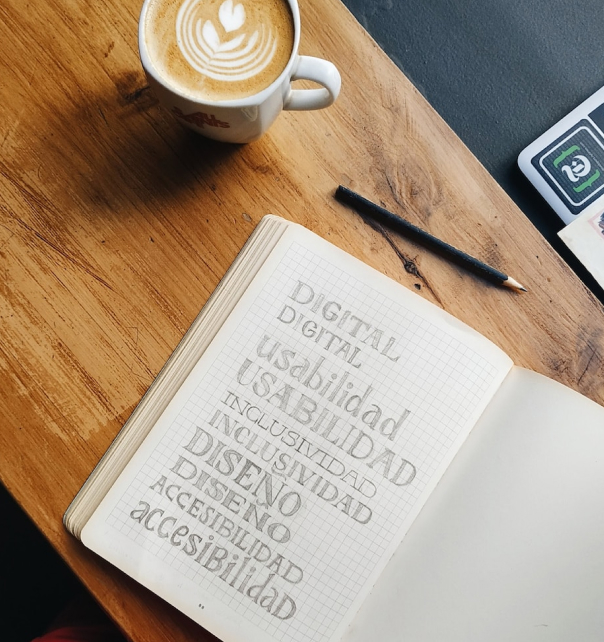 DIGITAL
DIGITAL
usabilidad
USABILIDAD
INCLUSIVIDAD
INCLUSIVIDAD
DISEÑO
DISEÑO
ACCESIBILIDAD
accesiBilidad